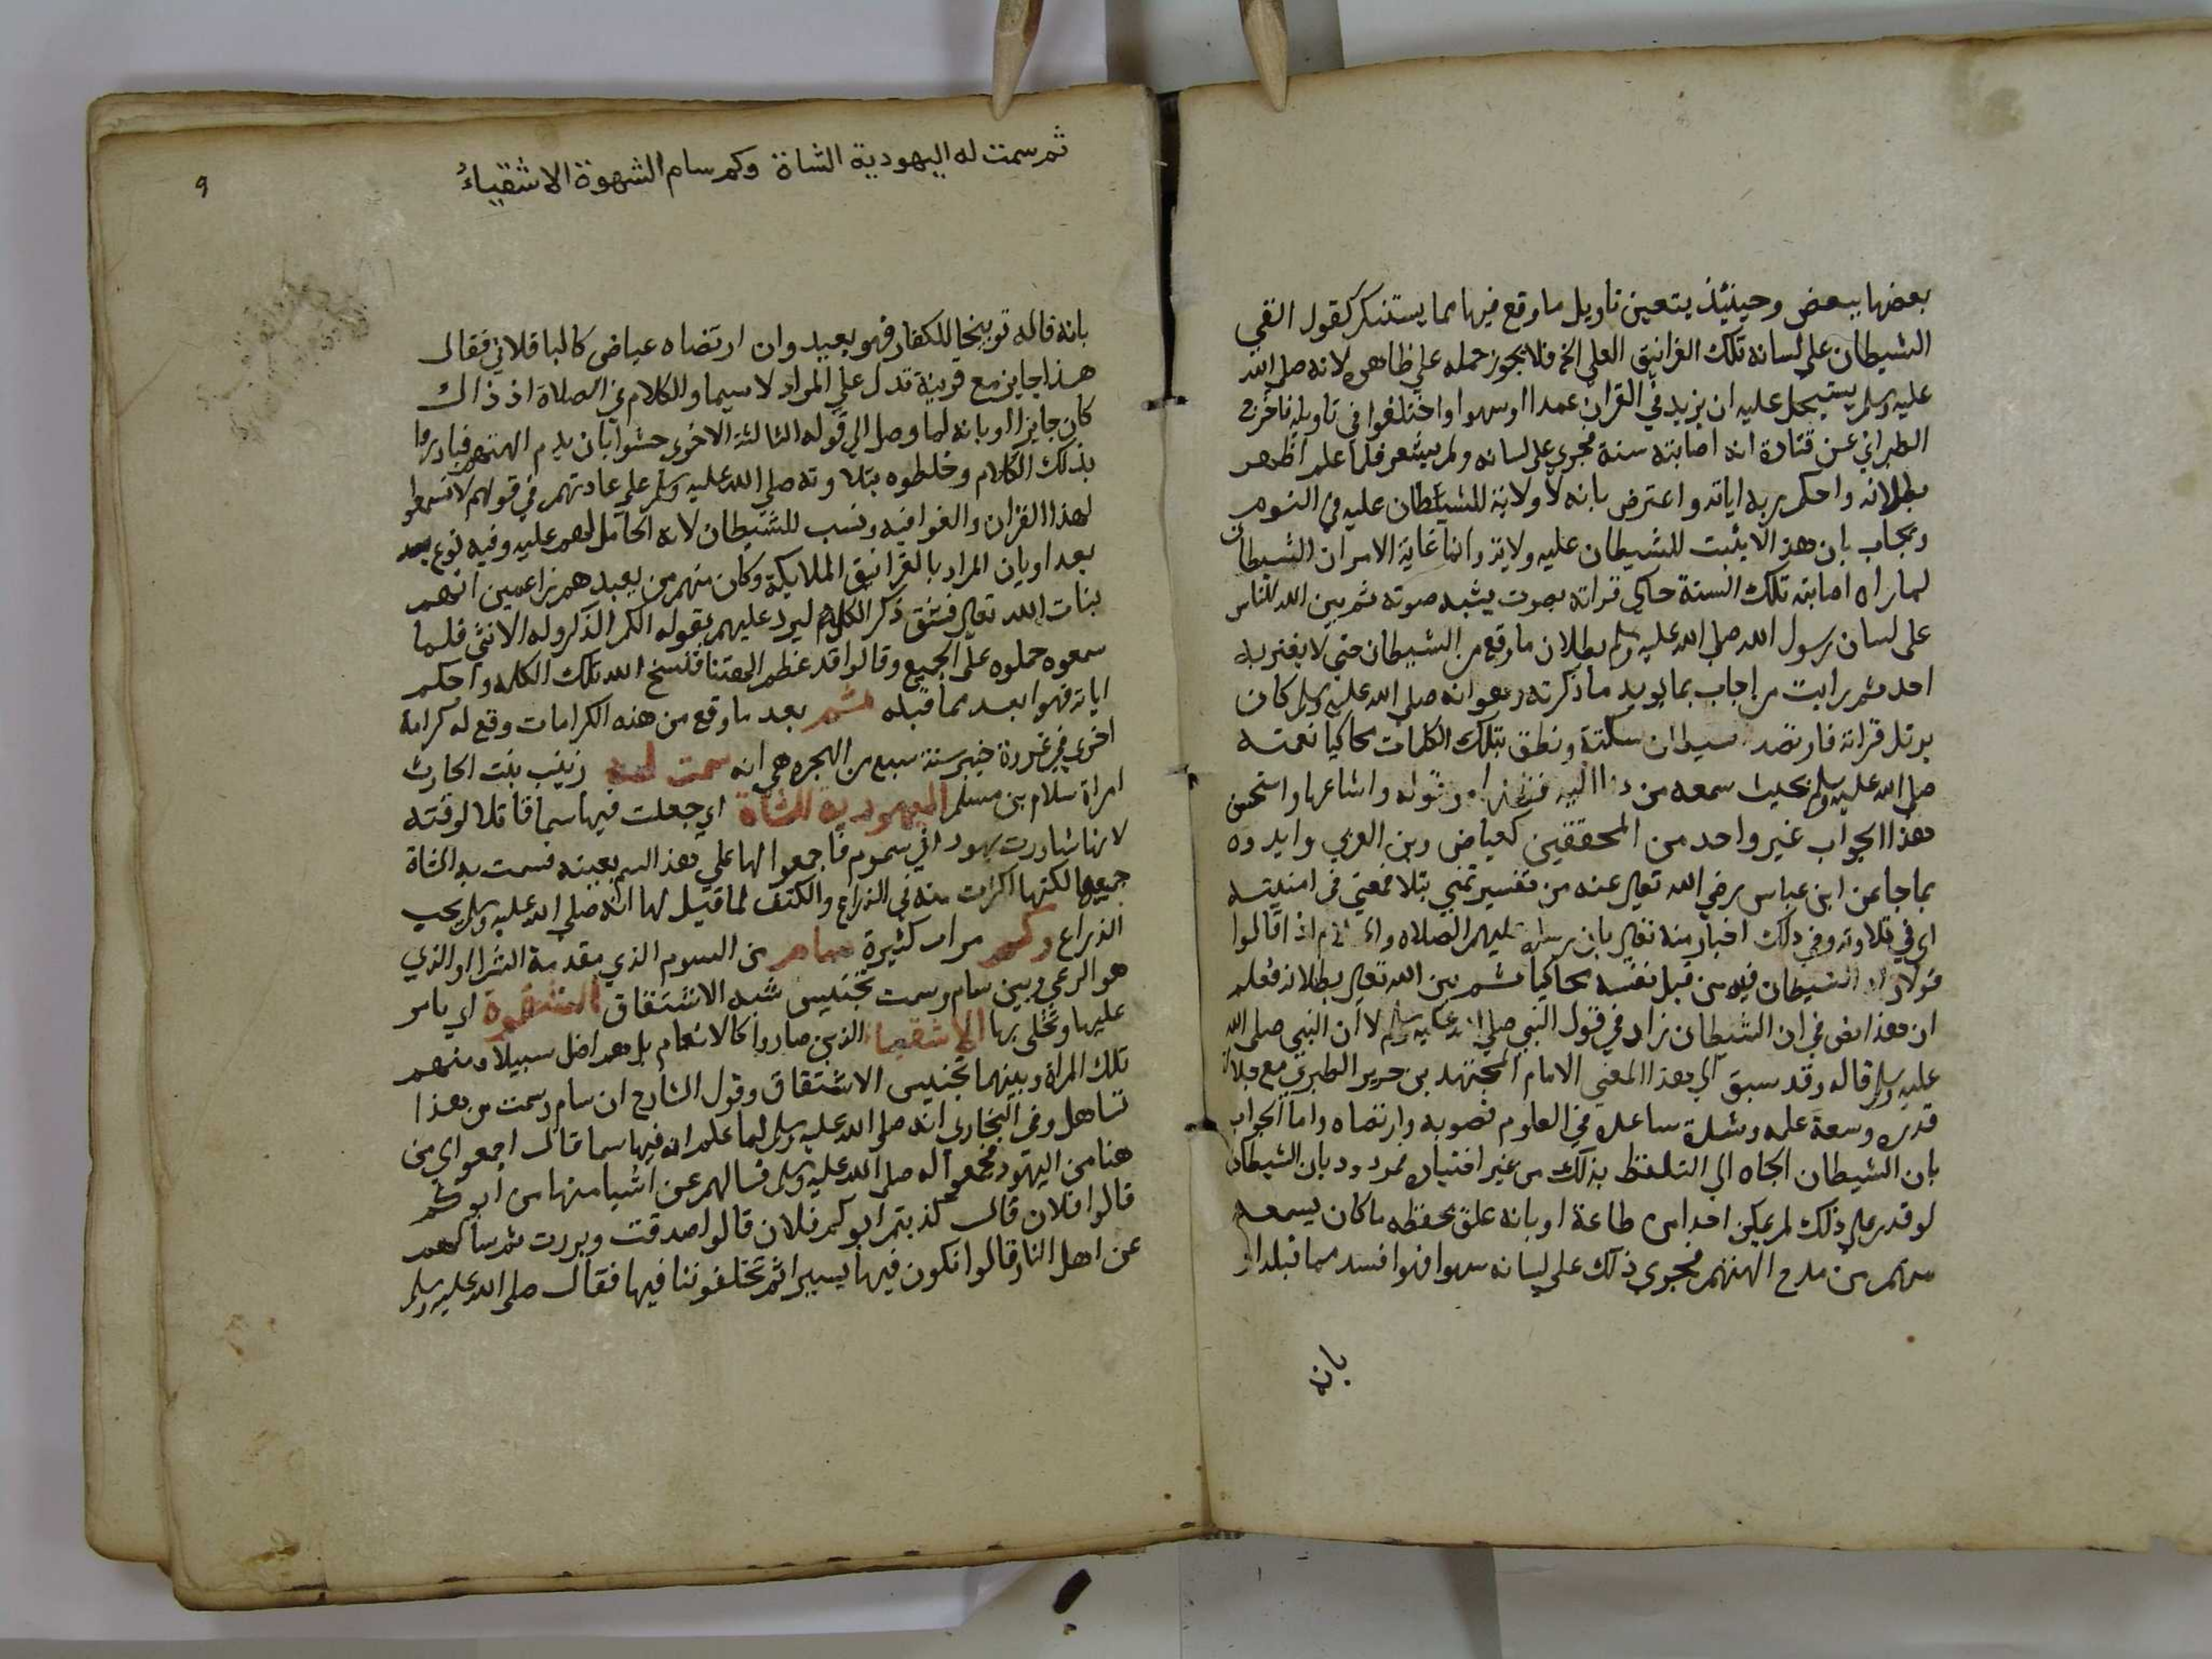 بعضها ببعض وحينئذ يتعين تاويل ما وقع فيها مما يستنكر كقول القي
الشيطان على لسانه تلك الغرانيق العلى الخ فلا يجوز حمله علي ظاهره لانه صلى الله
عليه وسلم يستحيل عليه ان يزيد في القران عمدا او سهوا واختلفوا في تاويله فاخرج
الطبراني عن قتادة انه اصابته سنة فجرى على لسانه ولم يشعر فلما علم اظهر
بطلانه واحكم ربه اياته واعترض بانه لا ولاية للشيطان عليه في النوم
ويجاب بان هذا لا يثبت للشيطان عليه ولاية وانما غاية الامر ان الشيطان
لما راه اصابته تلك السنة حاكى قراته بصوت يشبه صوته ثم بين الله للناس
على لسان رسول الله صلى الله عليه وسلم بطلان ما وقع من الشيطان حتي لا يغتر به
احد ثم رايت من اجاب بما يويد ما ذكرته وهو انه صلى الله عليه وسلم كان
يرتل قراته فارتصد سكتة ونطق بتلك الكلمات محاكيا نغمته
صلى الله عليه وسلم بحيث سمعه من دنا اليه فظنها من قوله واشاعها واستحسن
هذا الجواب غير واحد من المحققين كعياض وبن العربي وايدوه
بما جا عن ابن عباس رضي الله تعالى عنه من تفسير تمني بتلا فمعني في امنيته
اي في تلاوته وفي ذلك اخبار منه تعالى بان رسله عليهم الصلاه اذا قالوا
قولا زاد الشيطان فيه من قبل نفسه محاكيا ثم بين الله تعالى بطلانه فعلم
ان هذا نص في ان الشيطان زاد في قول النبي صلى الله عليه وسلم لا ان النبي صلى الله
عليه وسلم قاله وقد سبق الي هذا المعني الامام المجتهد بن جرير الطبري مع جلالة
قدره وسعة علمه وشدة ساعده في العلوم فصوبه وارتضاه واما الجواب
بان الشيطان الجاه الي التلفظ بذلك من غير اختيار فمردود بان الشيطان
لو قدر على ذلك لم يمكن احدا من طاعة او بانه علق بحفظه ما كان يسمعه
منهم من مدح الهتهم فجرى ذلك على لسانه سهوا فهو افسد مما قبله او
بانه
9
ثم سمت له اليهودية الشاة وكم سام الشهوة الاشقياءُ
بانه قاله توبيخا للكفار فهو بعيد وان ارتضاه عياض كالباقلاني فقال
هذا جايز مع قرينة تدل علي المراد لا سيما والكلام في الصلاة اذ ذاك
كان جايزا او بانه لما وصل الي قوله الثالثة الاخرى خشوا بان يذم الهتهم فبادروا
بذلك الكلام وخلطوه بتلاوته صلى الله عليه وسلم على عادتهم في قولهم لا تسمعوا
لهذا القران والغوا فيه ونسب للشيطان لانه الحامل لهم عليه وفيه نوع بعد
بعد او بان المراد بالغرانيق الملايكة وكان منهم من يعبدهم زاعمين انهم
بنات الله تعالى فنسق ذكر الكل ليرد عليهم بقوله الكم الذكر وله الانثى فلما
سمعوه حملوه على الجميع وقالوا قد عظم الهتنا فنسخ الله تلك الكلمه واحكم
اياته فهو ابعد مما قبله ثم بعد ما وقع من هذه الكرامات وقع له كرامة
اخرى في غزوة خيبر سنة سبع من الهجره هي انه سمت له زينب بنت الحارث
امراة سلام بن مسلم اليهودية الشاة اي جعلت فيها سما قاتلا لوقته
لانها شاورت يهود في سموم فاجمعوا لها على هذا السم بعينه فسمت به الشاة
جميعها لكنها اكثرت منه في الذراع والكتف لما قيل لها انه صلى الله عليه وسلم يحب
الذراع وكم مرات كثيرة سام من السوم الذي مقدمة الشرا او الذي
هو الرعي وبين سام وسمت تجنيس شبه الاشتقاق الشقوة اي يامر
عليها وتحلى بها الاشقياء الذين صاروا كالانعام بل هم اضل سبيلا ومنهم
تلك المراة وبينهما تجنيس الاشتقاق وقول الشارح ان سام وسمت من هذا
تساهل وفي البخاري انه صلى الله عليه وسلم لما علم انه فيها سما قال اجمعوا لي من
هنا من اليهود فجمعوا له صلى الله عليه وسلم فسالهم عن اشيا منها من ابوكم
قالوا فلان قال كذبتم ابوكم فلان قالوا صدقت وبررت ثم سالهم
عن اهل النار قالوا نكون فيها يسيرا ثم تخلفوننا فيها فقال صلى الله عليه وسلم